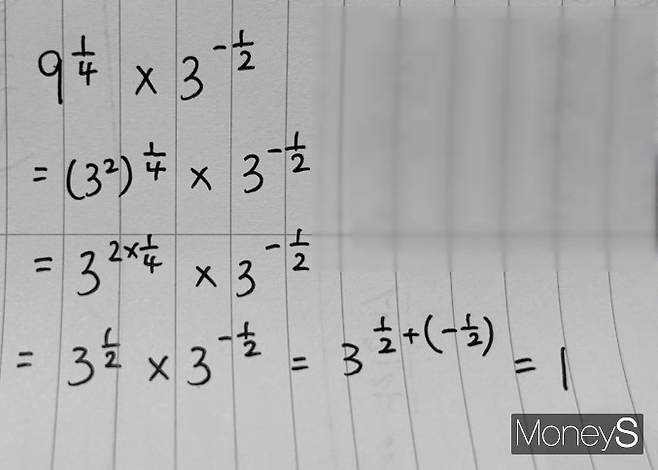 9^{1/4} × 3^{-1/2}
= (3²)^{1/4} × 3^{-1/2}
= 3^{2×1/4} × 3^{-1/2}
= 3^{1/2} × 3^{-1/2} = 3^{1/2+(-1/2)} = 1
MoneyS